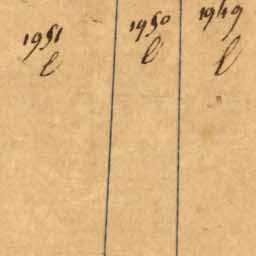 1951 1950 1949
l l l
"